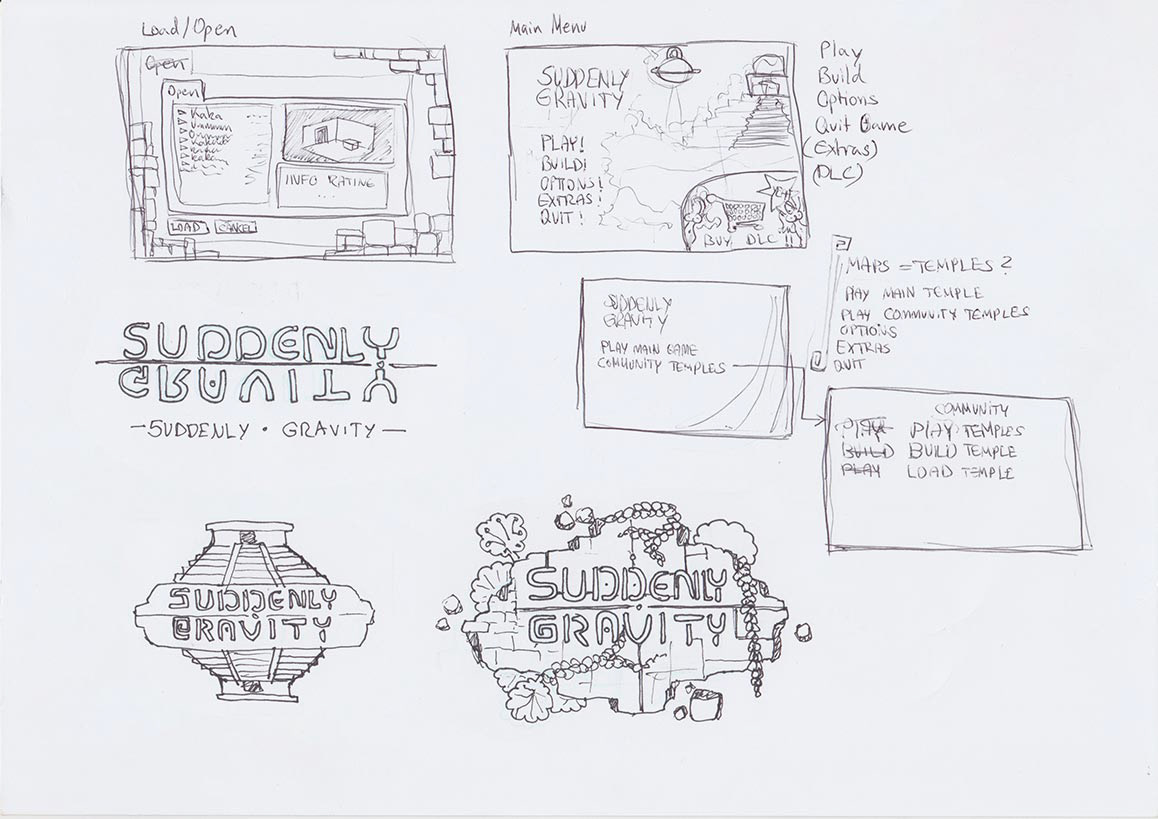 Load/Open
Open
Open
Kaka
INFO RATING
...
LOAD
CANCEL
Main Menu
SUDDENLY
GRAVITY
PLAY!
BUILD!
OPTIONS!
EXTRAS!
QUIT!
BUY DLC!!
Play
Build
Options
Quit Game
(Extras)
(DLC)
MAPS = TEMPLES?
PLAY MAIN TEMPLE
PLAY COMMUNITY TEMPLES
OPTIONS
EXTRAS
QUIT
SUDDENLY
GRAVITY
PLAY MAIN GAME
COMMUNITY TEMPLES
COMMUNITY
PLAY PLAY TEMPLES
BUILD BUILD TEMPLE
PLAY LOAD TEMPLE
SUDDENLY
GRAVITY
—SUDDENLY · GRAVITY—
SUDDENLY
GRAVITY
SUDDENLY
GRAVITY